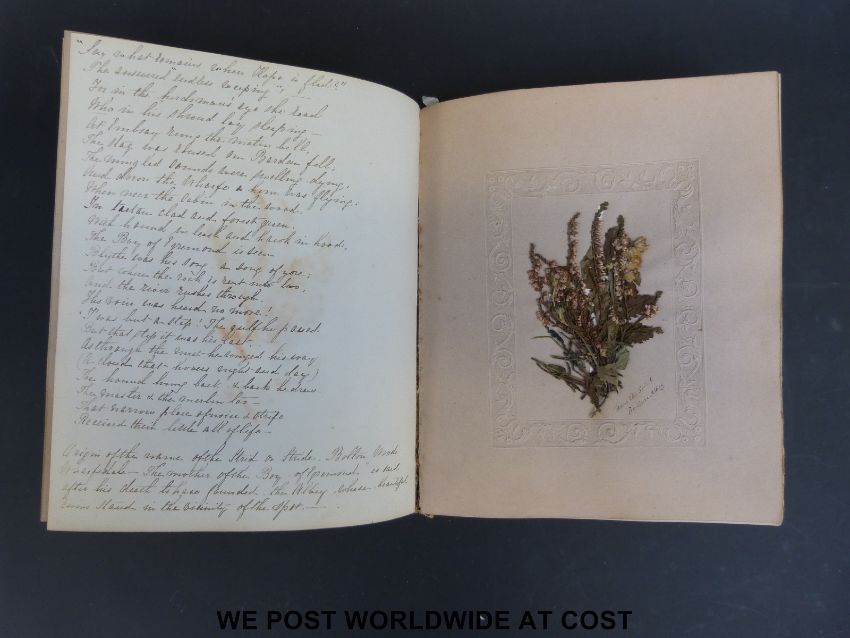 "Say what remains when Hope is fled?"
She answered "endless weeping"; —
For in the herdsman's eye she read
Who in his shroud lay sleeping —
At Embsay rung the matin bell,
The stag was roused on Barden fell,
The mingled sounds were swelling dying,
And down the Wharfe a hern was flying;
When near the cabin in the wood,
In tartan clad and forest green,
With hound in leash and hawk in hood,
The Boy of Egremond is seen
Blythe was his song a song of yore;
But where the rock is rent into two,
And the river rushes through
His voice was heard no more!
'Twas but a step! The gulf he passed
But that step it was his last
As through the mist he winged his way
(A cloud that hovers night and day)
The hound hung back & back he drew
The master & the merlin too
That narrow place of noise & strife
Received their little all of life —
Origin of the name of the Strid or Stride. Bolton Woods
Wharfdale — The mother of the Boy of Egremond" is said
after his death to have founded the Abbey whose beautiful
ruins stand in the vicinity of the spot. —
Bolton Abbey
WE POST WORLDWIDE AT COST